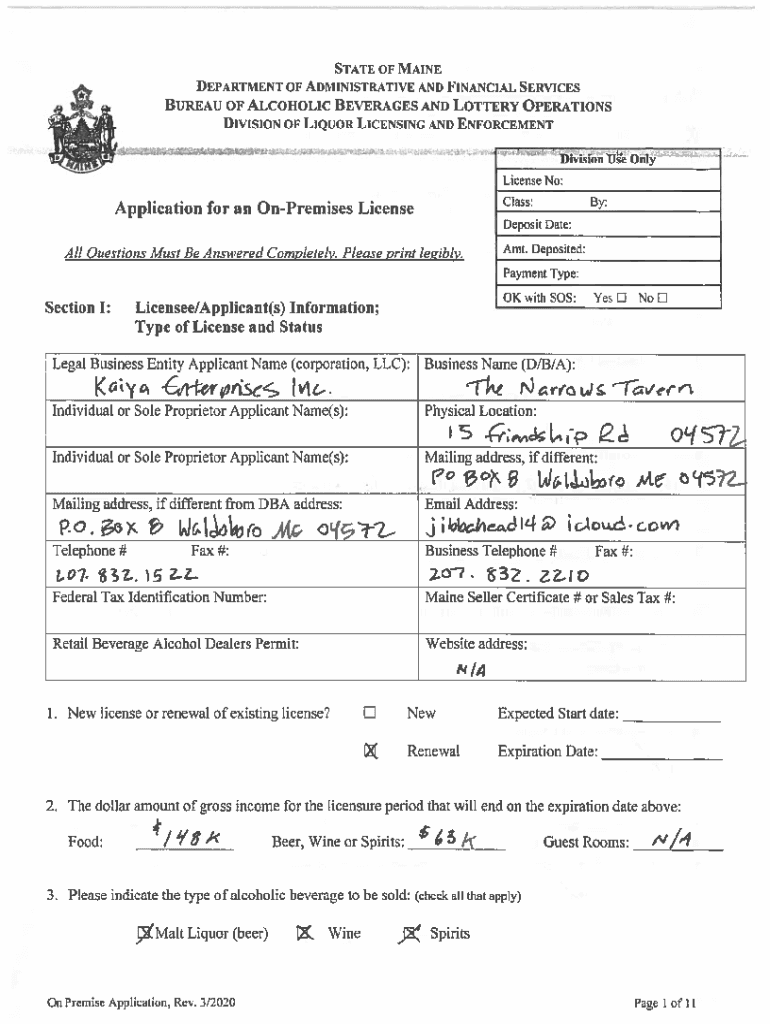 STATE OF MAINE
DEPARTMENT OF ADMINISTRATIVE AND FINANCIAL SERVICES
BUREAU OF ALCOHOLIC BEVERAGES AND LOTTERY OPERATIONS
DIVISION OF LIQUOR LICENSING AND ENFORCEMENT
MAINE
Division Use Only
License No:
Class: By:
Deposit Date:
Amt. Deposited:
Payment Type:
OK with SOS: Yes ☐ No ☐
Application for an On-Premises License
All Questions Must Be Answered Completely. Please print legibly.
Section I: Licensee/Applicant(s) Information;
Type of License and Status
Legal Business Entity Applicant Name (corporation, LLC): Business Name (D/B/A):
Kaiya Enterprises Inc. The Narrows Tavern
Individual or Sole Proprietor Applicant Name(s): Physical Location:
15 friendship Rd 04572
Individual or Sole Proprietor Applicant Name(s): Mailing address, if different:
PO BOX 8 Waldoboro ME 04572
Mailing address, if different from DBA address: Email Address:
P.O. Box 8 Waldoboro Me 04572 jibbehead14@icloud.com
Telephone # Fax #: Business Telephone # Fax #:
207. 832. 1522 207. 832. 2210
Federal Tax Identification Number: Maine Seller Certificate # or Sales Tax #:
Retail Beverage Alcohol Dealers Permit: Website address:
N/A
1. New license or renewal of existing license? ☐ New Expected Start date:
☒ Renewal Expiration Date:
2. The dollar amount of gross income for the licensure period that will end on the expiration date above:
Food: $148K Beer, Wine or Spirits: $63K Guest Rooms: N/A
3. Please indicate the type of alcoholic beverage to be sold: (check all that apply)
☒ Malt Liquor (beer) ☒ Wine ☒ Spirits
On Premise Application, Rev. 3/2020 Page 1 of 11